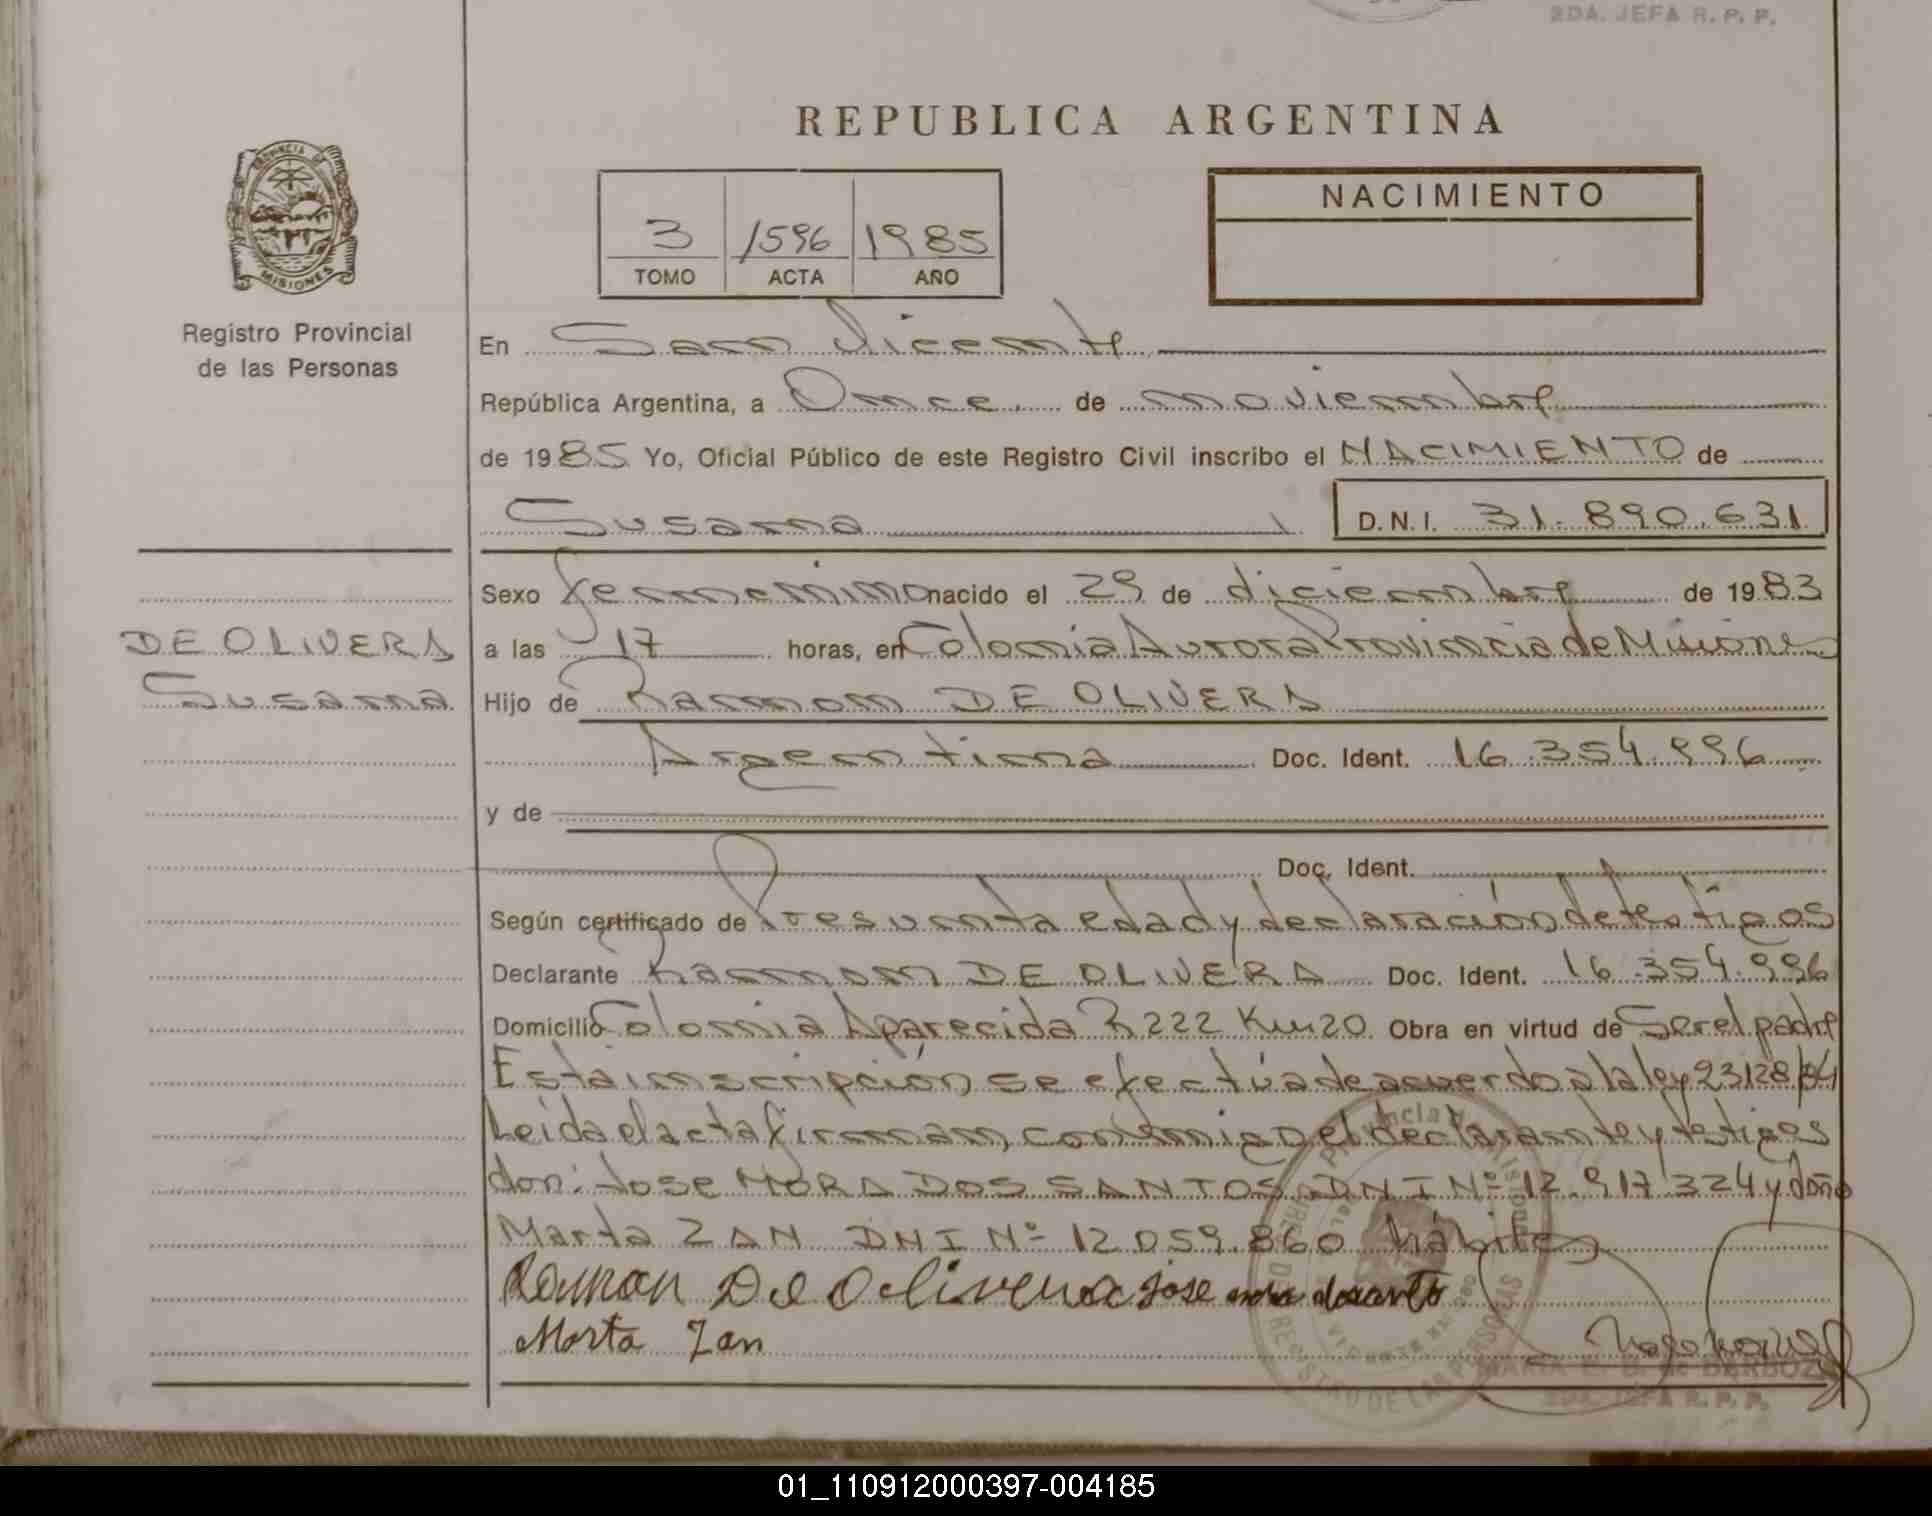 2DA. JEFA R. P. P.
REPUBLICA ARGENTINA
PROVINCIA DE
MISIONES
Registro Provincial
de las Personas
3 1596 1985
TOMO ACTA AÑO
NACIMIENTO
En San Vicente
República Argentina, a Once de noviembre
de 1985 Yo, Oficial Público de este Registro Civil inscribo el NACIMIENTO de
Susana D.N.I. 31.890.631
Sexo femenino nacido el 29 de diciembre de 1983
DE OLIVERA
Susana
a las 17 horas, en Colonia Aurora Provincia de Misiones
Hijo de Ramon DE OLIVERA
Argentina Doc. Ident. 16.354.996
y de
Doc. Ident.
Según certificado de Presunta edad y declaración de testigos
Declarante Ramon DE OLIVERA Doc. Ident. 16.354.996
Domicilio Colonia Aparecida R 222 Km 20. Obra en virtud de Ser el padre
Esta inscripción se efectúa de acuerdo a la ley 23128/84
Leída el acta firman conmigo el declarante y testigos
don: Jose MORA DOS SANTOS DNI Nº 12.917.324 y doña
Marta ZAN DNI Nº 12.059.860 hábiles
Ramon De Olivera Jose mora dosanto
Marta Zan
2DA. JEFA R. P. P.
01_110912000397-004185